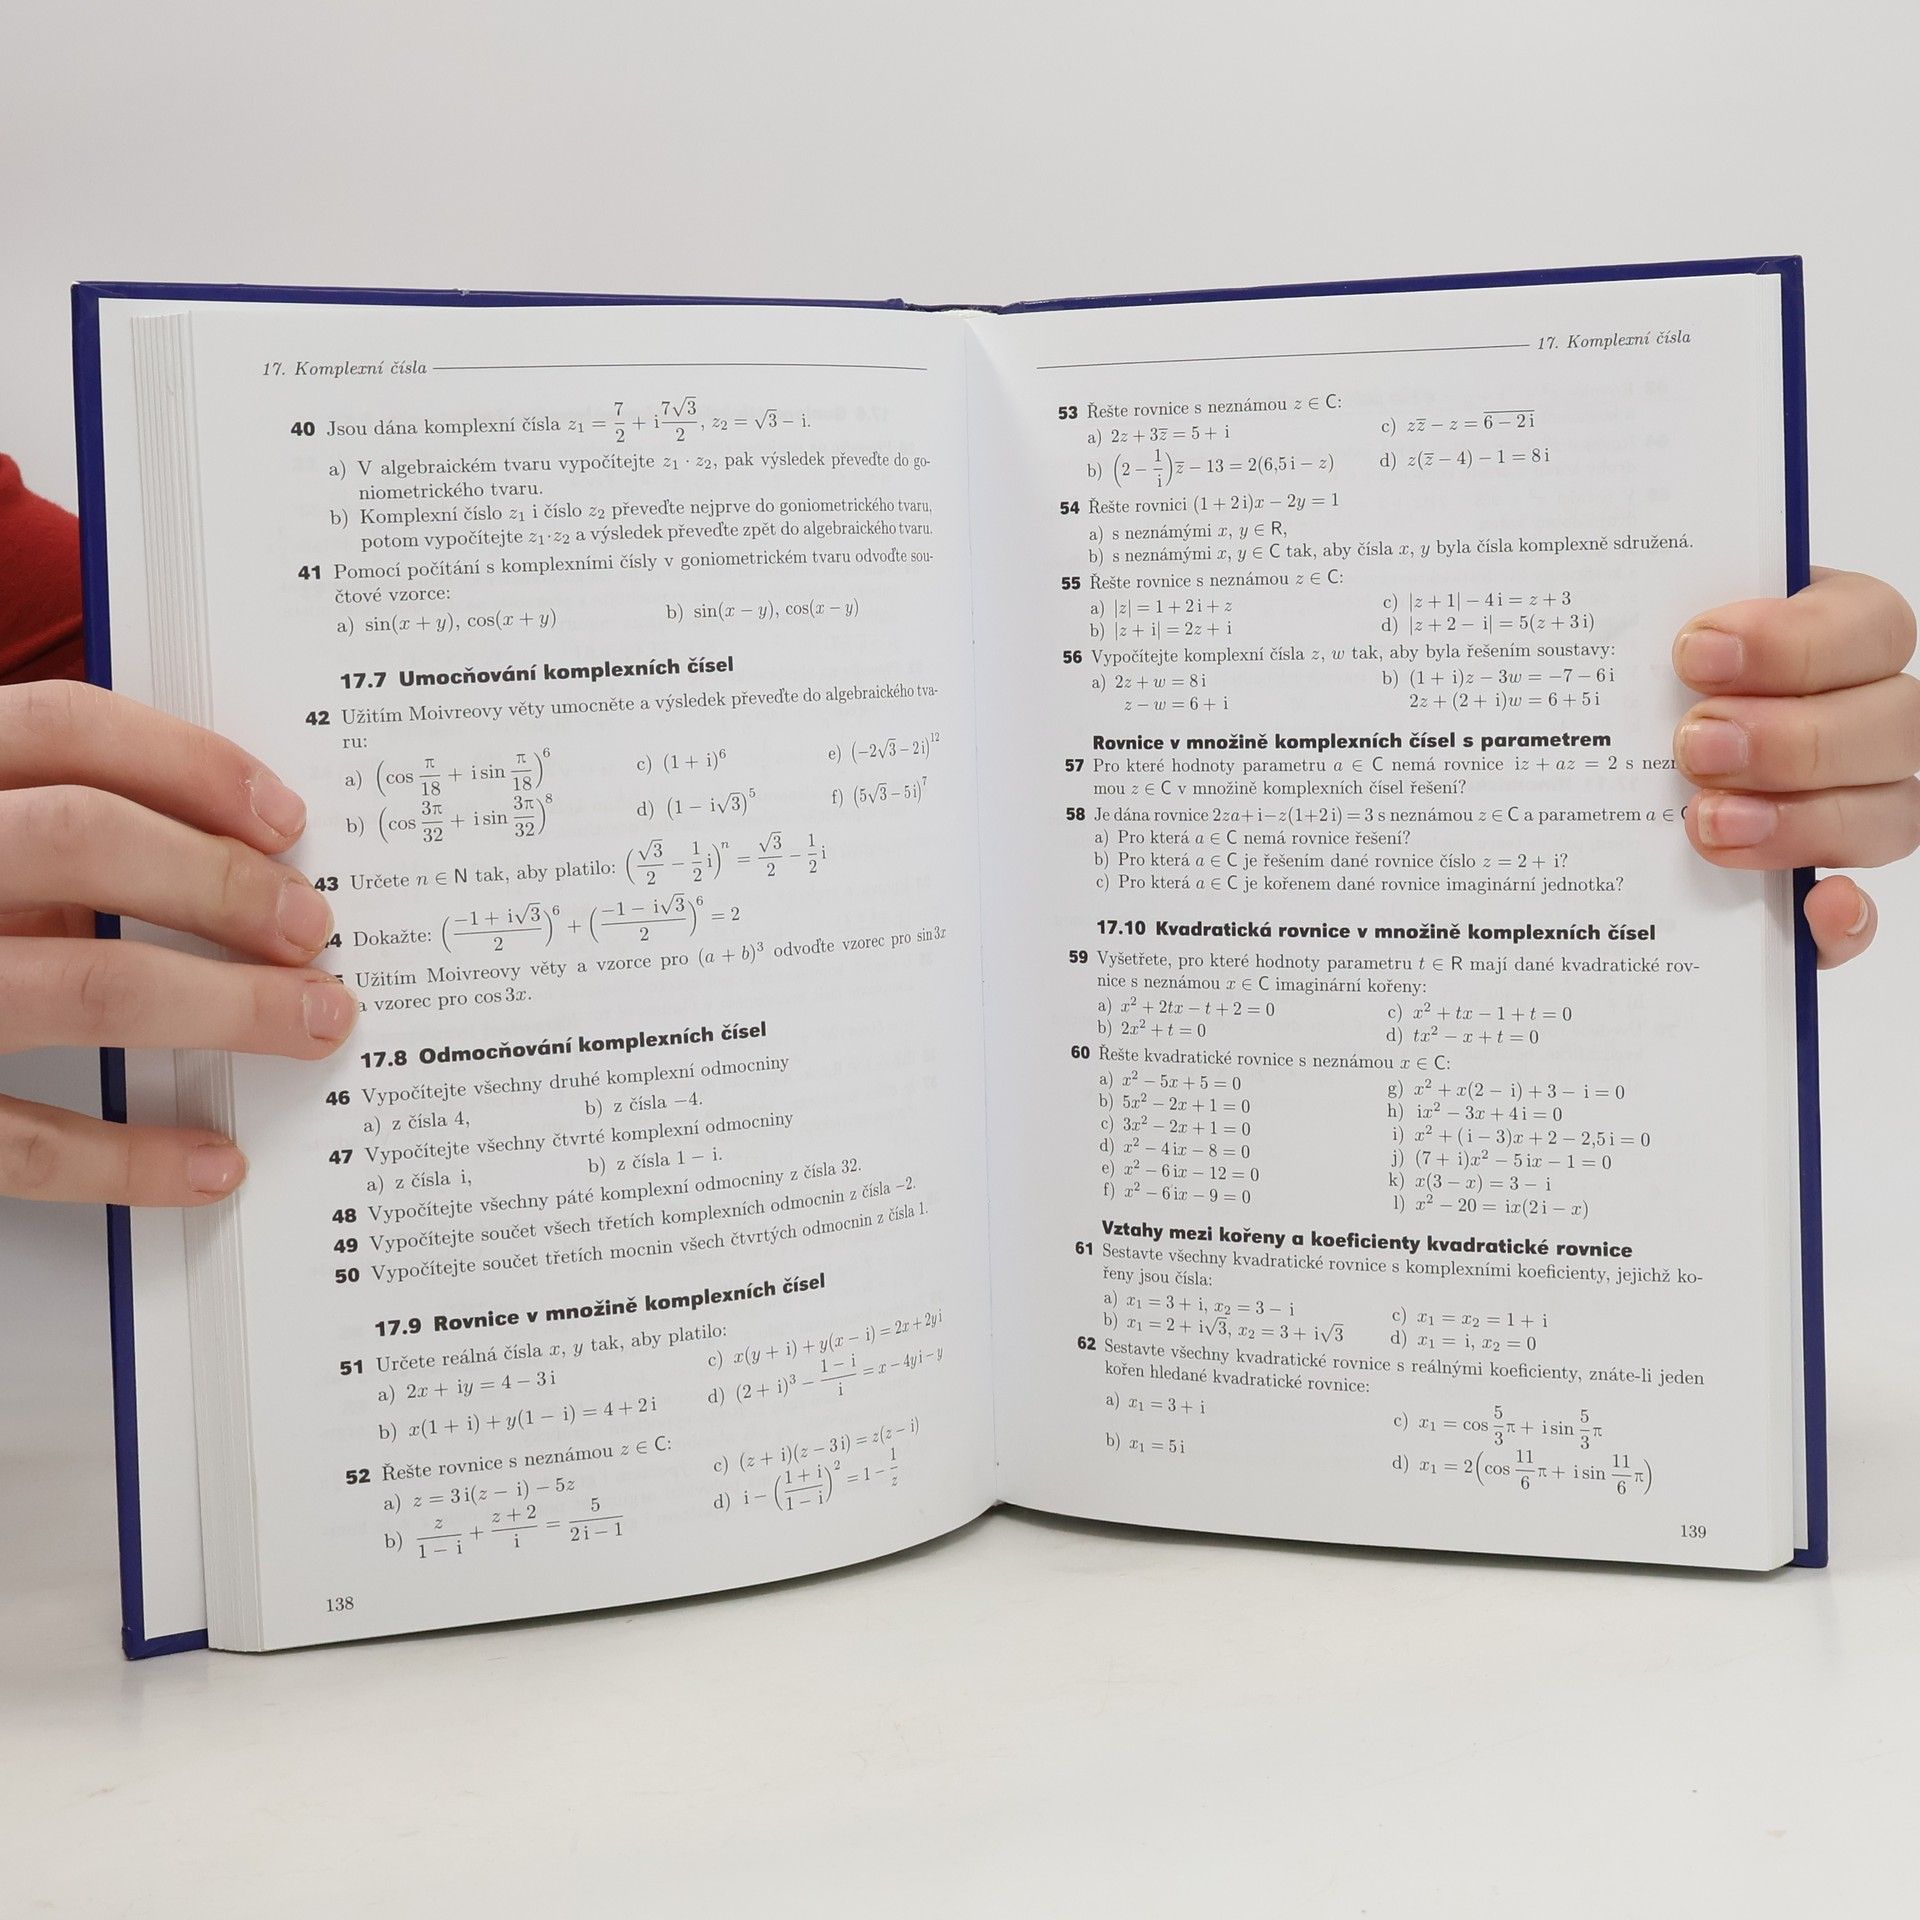 17. Komplexní čísla
40 Jsou dána komplexní čísla z₁ = 7/2 + i 7√3/2, z₂ = √3 − i.
a) V algebraickém tvaru vypočítejte z₁ · z₂, pak výsledek převeďte do go-
niometrického tvaru.
b) Komplexní číslo z₁ i číslo z₂ převeďte nejprve do goniometrického tvaru,
potom vypočítejte z₁·z₂ a výsledek převeďte zpět do algebraického tvaru.
41 Pomocí počítání s komplexními čísly v goniometrickém tvaru odvoďte sou-
čtové vzorce:
a) sin(x + y), cos(x + y) b) sin(x − y), cos(x − y)
17.7 Umocňování komplexních čísel
42 Užitím Moivreovy věty umocněte a výsledek převeďte do algebraického tva-
ru:
a) (cos π/18 + i sin π/18)⁶ c) (1 + i)⁶ e) (−2√3 − 2i)¹²
b) (cos 3π/32 + i sin 3π/32)⁸ d) (1 − i√3)⁵ f) (5√3 − 5i)⁷
43 Určete n ∈ N tak, aby platilo: (√3/2 − 1/2 i)ⁿ = √3/2 − 1/2 i
4 Dokažte: ((−1 + i√3)/2)⁶ + ((−1 − i√3)/2)⁶ = 2
Užitím Moivreovy věty a vzorce pro (a + b)³ odvoďte vzorec pro sin 3x
a vzorec pro cos 3x.
17.8 Odmocňování komplexních čísel
46 Vypočítejte všechny druhé komplexní odmocniny
a) z čísla 4, b) z čísla −4.
47 Vypočítejte všechny čtvrté komplexní odmocniny
a) z čísla i, b) z čísla 1 − i.
48 Vypočítejte všechny páté komplexní odmocniny z čísla 32.
49 Vypočítejte součet všech třetích komplexních odmocnin z čísla −2.
50 Vypočítejte součet třetích mocnin všech čtvrtých odmocnin z čísla 1.
17.9 Rovnice v množině komplexních čísel
51 Určete reálná čísla x, y tak, aby platilo:
a) 2x + iy = 4 − 3i c) x(y + i) + y(x − i) = 2x + 2yi
b) x(1 + i) + y(1 − i) = 4 + 2i d) (2 + i)³ − (1 − i)/i = x − 4yi − y
52 Řešte rovnice s neznámou z ∈ C:
a) z = 3i(z − i) − 5z c) (z + i)(z − 3i) = z(z − i)
b) z/(1 − i) + (z + 2)/i = 5/(2i − 1) d) i − ((1 + i)/(1 − i))² = 1 − 1/z
138
17. Komplexní čísla
53 Řešte rovnice s neznámou z ∈ C:
a) 2z + 3z̅ = 5 + i c) zz̅ − z = 6̅ ̅−̅ ̅2̅i̅
b) (2 − 1/i)z̅ − 13 = 2(6,5i − z) d) z(z̅ − 4) − 1 = 8i
54 Řešte rovnici (1 + 2i)x − 2y = 1
a) s neznámými x, y ∈ R,
b) s neznámými x, y ∈ C tak, aby čísla x, y byla čísla komplexně sdružená.
55 Řešte rovnice s neznámou z ∈ C:
a) |z| = 1 + 2i + z c) |z + 1| − 4i = z + 3
b) |z + i| = 2z + i d) |z + 2 − i| = 5(z + 3i)
56 Vypočítejte komplexní čísla z, w tak, aby byla řešením soustavy:
a) 2z + w = 8i b) (1 + i)z − 3w = −7 − 6i
z − w = 6 + i 2z + (2 + i)w = 6 + 5i
Rovnice v množině komplexních čísel s parametrem
57 Pro které hodnoty parametru a ∈ C nemá rovnice iz + az = 2 s nez
mou z ∈ C v množině komplexních čísel řešení?
58 Je dána rovnice 2za + i − z(1+2i) = 3 s neznámou z ∈ C a parametrem a ∈
a) Pro která a ∈ C nemá rovnice řešení?
b) Pro která a ∈ C je řešením dané rovnice číslo z = 2 + i?
c) Pro která a ∈ C je kořenem dané rovnice imaginární jednotka?
17.10 Kvadratická rovnice v množině komplexních čísel
59 Vyšetřete, pro které hodnoty parametru t ∈ R mají dané kvadratické rov-
nice s neznámou x ∈ C imaginární kořeny:
a) x² + 2tx − t + 2 = 0 c) x² + tx − 1 + t = 0
b) 2x² + t = 0 d) tx² − x + t = 0
60 Řešte kvadratické rovnice s neznámou x ∈ C:
a) x² − 5x + 5 = 0 g) x² + x(2 − i) + 3 − i = 0
b) 5x² − 2x + 1 = 0 h) ix² − 3x + 4i = 0
c) 3x² − 2x + 1 = 0 i) x² + (i − 3)x + 2 − 2,5i = 0
d) x² − 4ix − 8 = 0 j) (7 + i)x² − 5ix − 1 = 0
e) x² − 6ix − 12 = 0 k) x(3 − x) = 3 − i
f) x² − 6ix − 9 = 0 l) x² − 20 = ix(2i − x)
Vztahy mezi kořeny a koeficienty kvadratické rovnice
61 Sestavte všechny kvadratické rovnice s komplexními koeficienty, jejichž ko-
řeny jsou čísla:
a) x₁ = 3 + i, x₂ = 3 − i c) x₁ = x₂ = 1 + i
b) x₁ = 2 + i√3, x₂ = 3 + i√3 d) x₁ = i, x₂ = 0
62 Sestavte všechny kvadratické rovnice s reálnými koeficienty, znáte-li jeden
kořen hledané kvadratické rovnice:
a) x₁ = 3 + i c) x₁ = cos 5/3 π + i sin 5/3 π
b) x₁ = 5i d) x₁ = 2(cos 11/6 π + i sin 11/6 π)
139